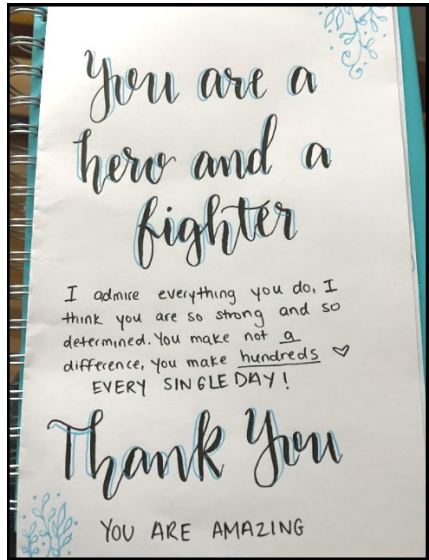 You are a
hero and a
fighter
I admire everything you do, I
think you are so strong and so
determined. You make not a
difference, you make hundreds ♡
EVERY SINGLE DAY!
Thank You
YOU ARE AMAZING